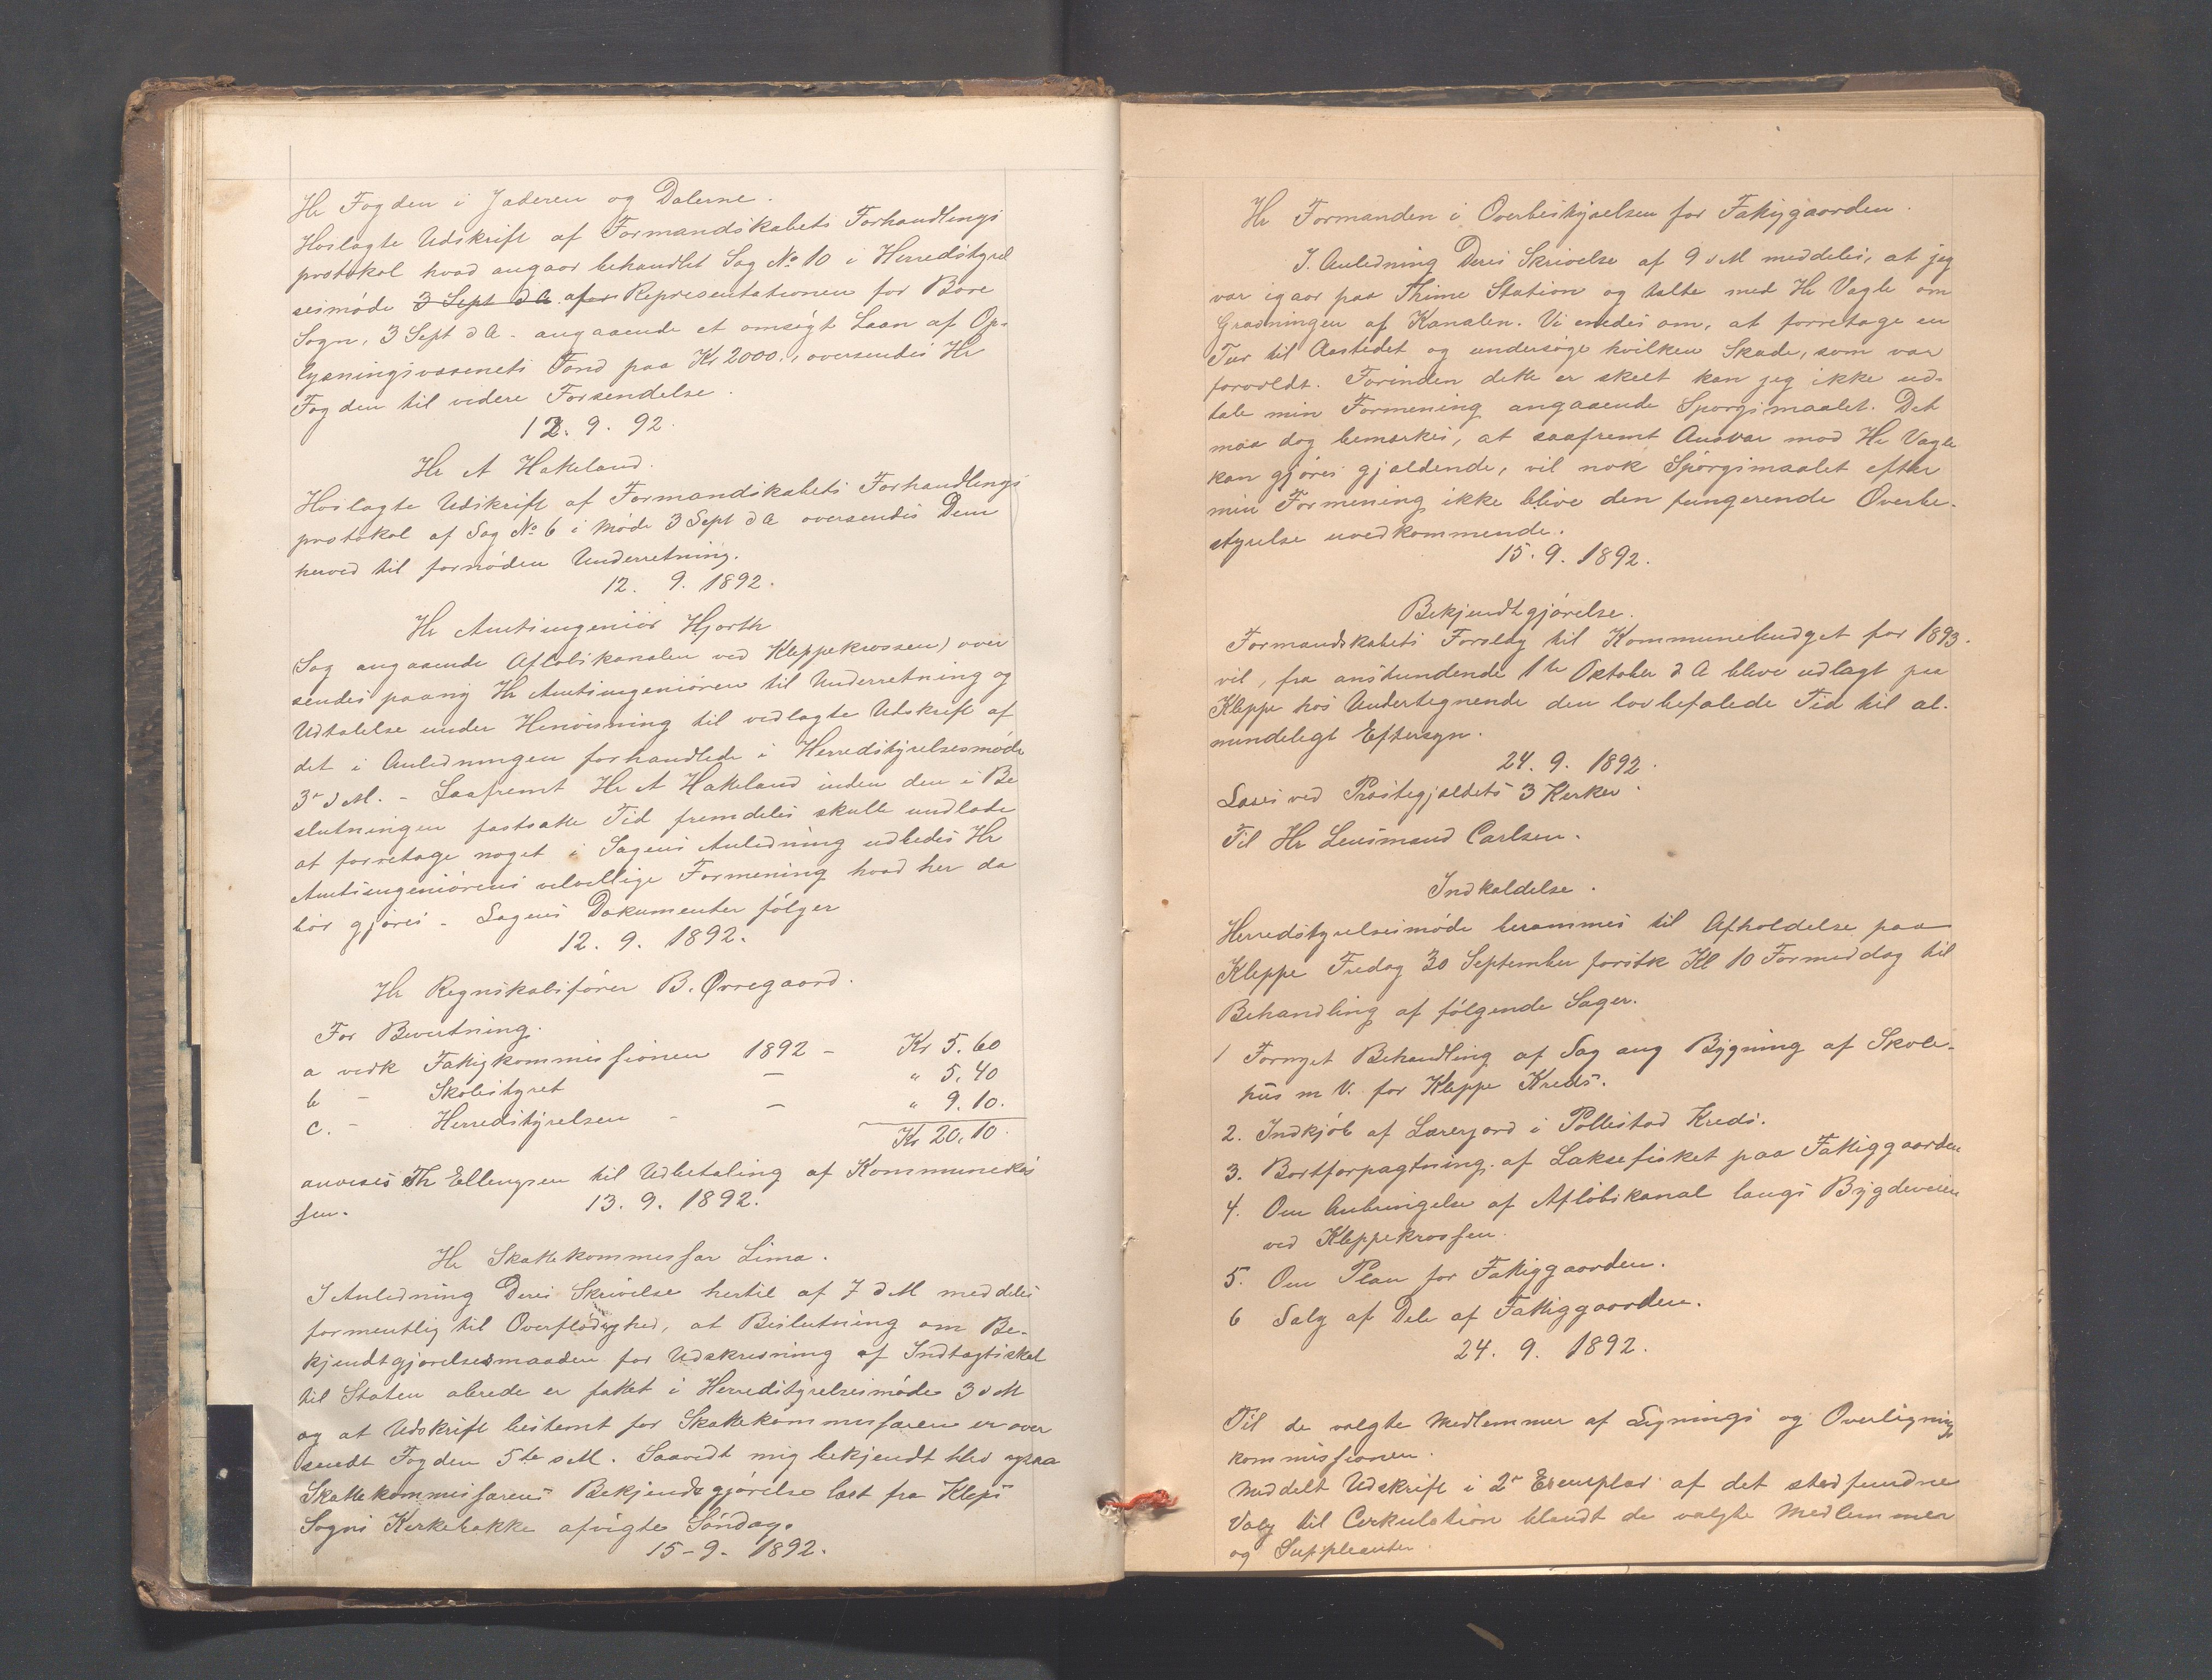 Hr Fogden i Jæderen og Dalerne.
Hoslagte Udskrift af Formandskabets Forhandlings
protokol hvad angaar behandlet Sag No 10 i Herredstyrel
sesmöde 3 Sept d A afor Repræsentationen for Bore
Sogn, 3 Sept d A - angaaende et omsögt Laan af Op-
lysningsvæsenets Fond paa Kr 2000., oversendes Hr
Fogden til videre Forsendelse.
12. 9. 92.
Hr A Hakeland.
Hoslagte Udskrift af Formandskabets Forhandlings
protokol af Sag No 6 i Möde 3 Sept d A oversendes Dem
herved til fornöden Underretning.
12. 9. 1892.
Hr Amtsingeniör Hjorth
(Sag angaaende Aflöbskanalen ved Kleppekrossen) over
sendes paany Hr Amtsingeniören til Underretning og
Udtalelse under Henvisning til vedlagte Udskrift af
det i Anledningen forhandlede i Herredstyrelsesmöde
3die d M. - Saafremt Hr A Hakeland inden den i Be
slutningen fastsatte Tid fremdeles skulle undlade
at forretage noget i Sagens Anledning udbedes Hr
Amtsingeniörens velvellige Formening hvad her da
bör gjöres - Sagens Dokumenter fölger
12. 9. 1892.
Hr Regnskabsförer B. Örregaard.
For Bevertning.
a vedk Fattigkommissionen 1892 - Kr 5.60
b - Skolestyret — " 5.40
c. - Herredstyrelsen - — " 9.10.
Kr 20.10.
anvises Th Ellengsen til Udbetaling af Kommunekas
sen. 13. 9. 1892.
Hr Skattekommissær Lima.
I Anledning Deres Skrivelse hertil af 7 d M meddeles
formentlig til Overflödighed, at Beslutning om Be-
kjendtgjörelsesmaaden for Udskrivning af Indtægtsskat
til Staten alerede er fattet i Herredstyrelsesmöde 3 d M
og at Udskrift bestemt for Skattekommissæren er over
sendt Fogden 5te d M. Saavidt mig bekjendt blev ogsaa
Skattekommissærens Bekjendtgjörelse læst fra Kleps
Sogns Kirkebakke afvigte Söndag.
15 - 9 - 1892.
Hr Formanden i Overbestyrelsen for Fattiggaarden.
I. Anledning Deres Skrivelse af 9 d M meddeles, at jeg
var igaar paa Thime Station og talte med Hr Vagle om
Gravningen af Kanalen. Vi enedes om, at forretage en
Tur til Aastedet og undersöge hvilken Skade, som var
forvoldt. Forinden dette er skeet kan jeg ikke ud-
tale min Formening angaaende Spörgsmaalet. Det
maa dog bemærkes, at saafremt Ansvar mod Hr Vagle
kan gjöres gjældende, vil nok Spörgsmaalet efter
min Formening ikke blive den fungerende Overbe-
styrelse uvedkommende.
15. 9. 1892.
Bekjendtgjörelse.
Formandskabets Forslag til Kommunebudget for 1893.
vil, fra anstundende 1te Oktober d A blive udlagt paa
Kleppe hos Undertegnende den lovbefalede Tid til al-
mindelegt Eftersyn.
24. 9. 1892.
Læses ved Præstegjældets 3 Kirker.
Til Hr Lensmand Carlsen.
Indkaldelse.
Herredstyrelsesmöde berammes til Afholdelse paa
Kleppe Fredag 30 September förstk Kl 10 Formiddag til
Behandling af fölgende Sager.
1 Fornyet Behandling af Sag ang Bygning af Skole-
hus m V. for Kleppe Kreds.
2. Indkjöb af Lærerjord i Pollestad Kreds.
3. Bortforpagtning af Laksefisket paa Fattiggaarden
4. Om Anbringelse af Aflöbskanal langs Bygdeveien
ved Kleppekrossen.
5. Om Plan for Fattiggaarden.
6 Salg af Dele af Fattiggaarden.
24. 9. 1892.
Til de valgte Medlemmer af Lignings og Overlignings
kommissionen.
Meddelt Udskrift i 2de Exemplar af det stedfundne
Valg til Cirkulation blandt de valgte Medlemmer
og Suppleanter.